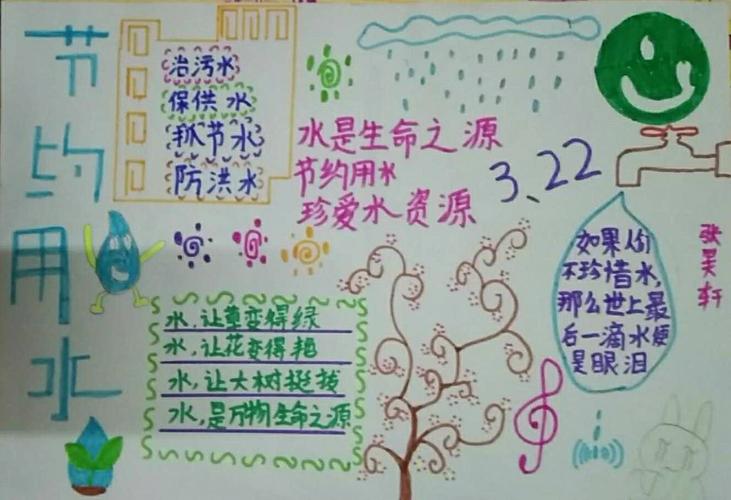 节约用水
治污水
保供水
抓节水
防洪水
水是生命之源
节约用水
珍爱水资源
3.22
如果人们
不珍惜水,
那么世上最
后一滴水便
是眼泪
张昊轩
水,让草变得绿
水,让花变得艳
水,让大树挺拔
水,是万物生命之源